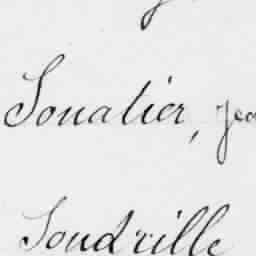 Sonatier, Jea
Sondville